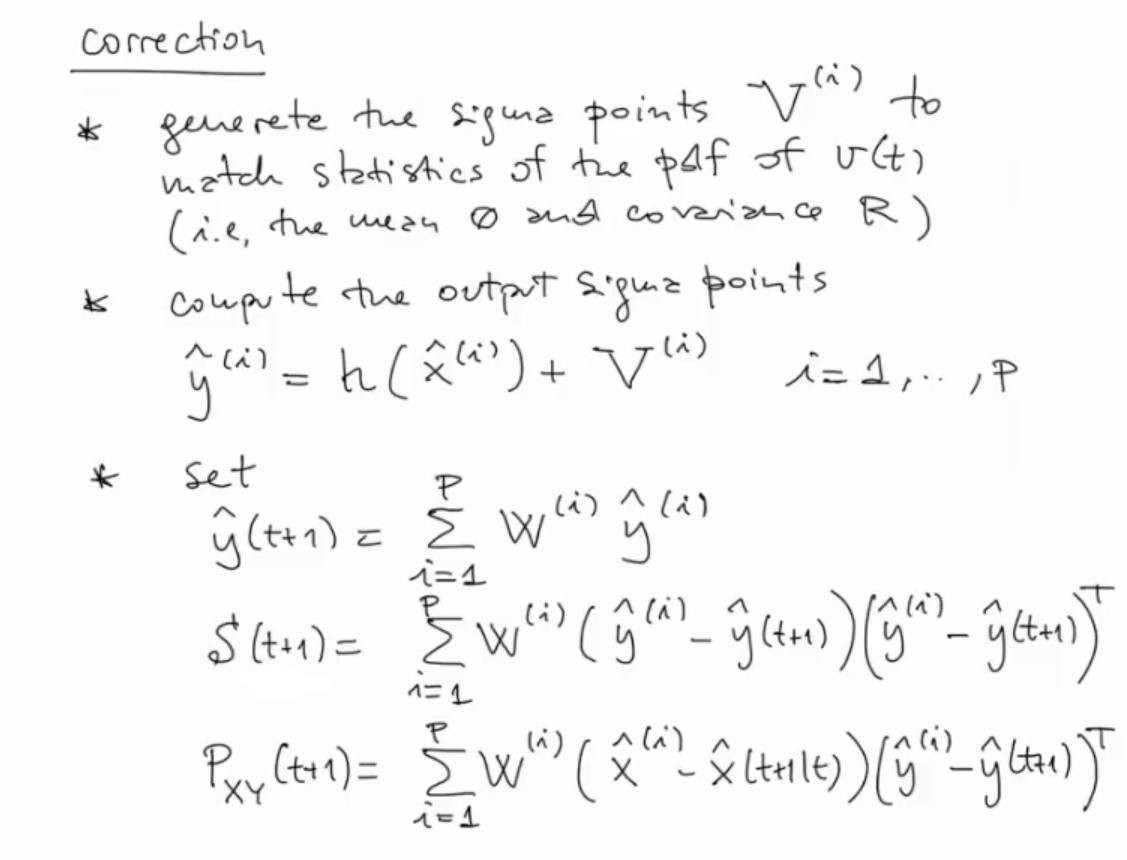 correction
* generete the sigma points V^(i) to
match statistics of the pdf of v(t)
(i.e, the mean ∅ and covariance R)
* compute the output sigma points
ŷ^(i) = h(x̂^(i)) + V^(i)    i=1,..,P
* set
ŷ(t+1) = ∑_{i=1}^{P} W^(i) ŷ^(i)
S(t+1) = ∑_{i=1}^{P} W^(i) (ŷ^(i) - ŷ(t+1))(ŷ^(i) - ŷ(t+1))^T
P_XY(t+1) = ∑_{i=1}^{P} W^(i) (x̂^(i) - x̂(t+1|t))(ŷ^(i) - ŷ(t+1))^T